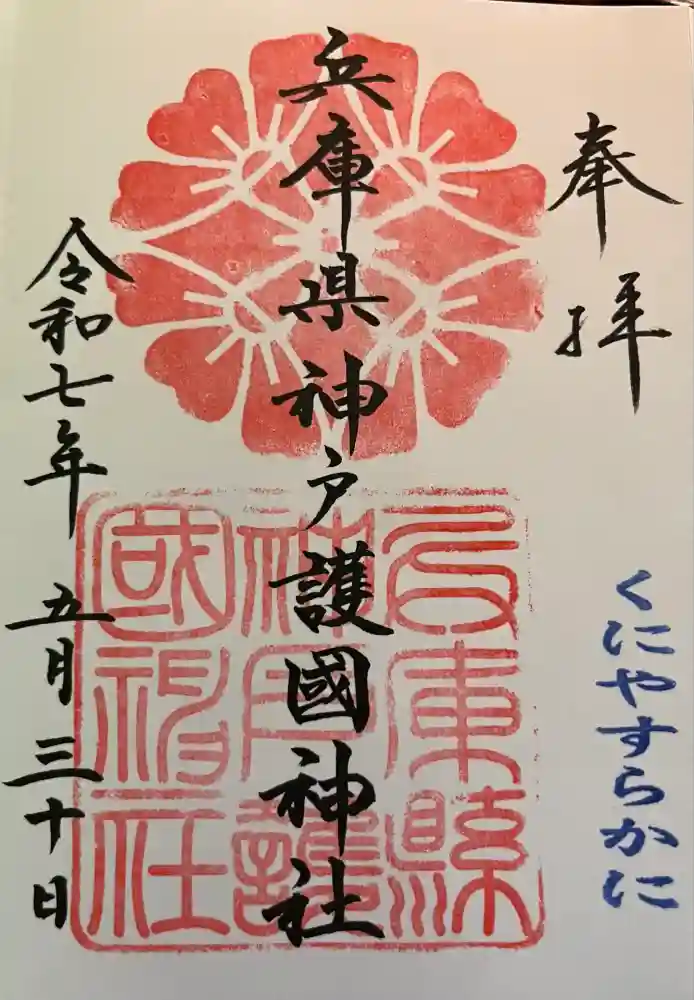 奉拝
くにやすらかに
兵庫県神戸護國神社
令和七年五月三十日
兵庫縣
神戸護
國神社